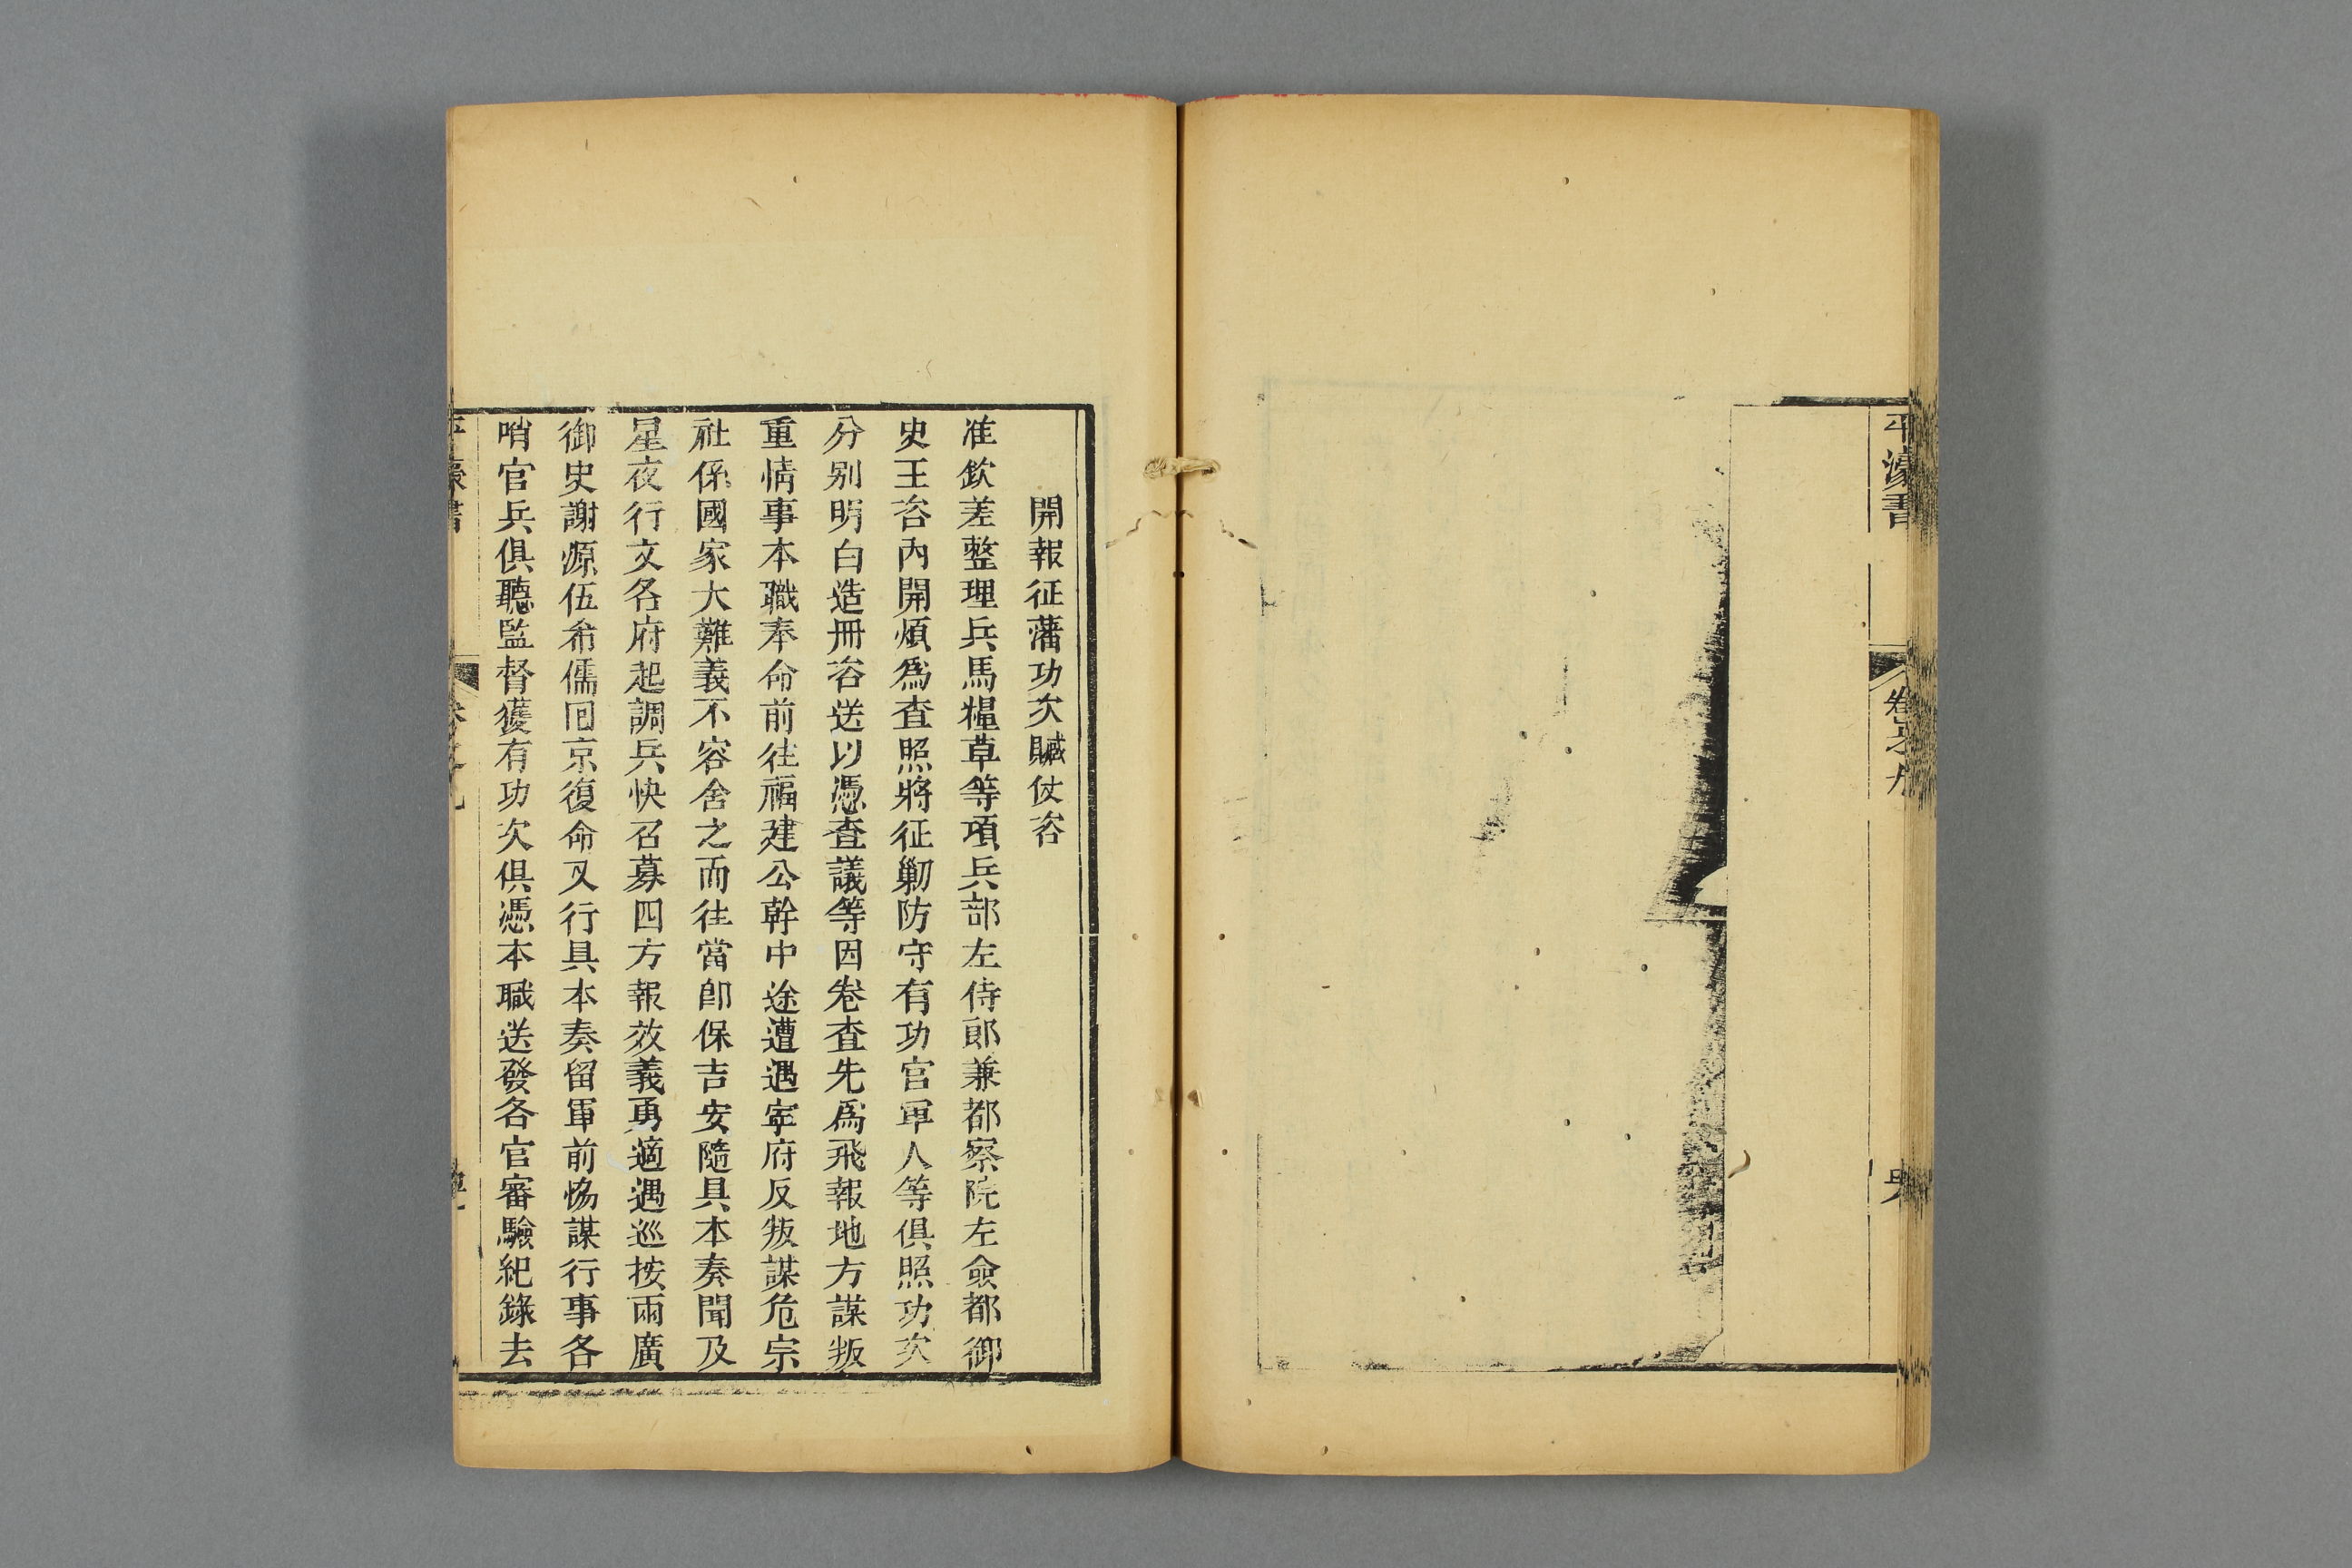 平濠書
卷之九
開報征藩功次贓仗咨
准欽差整理兵馬糧草等項兵部左侍郎兼都察院左僉都御
史王咨內開煩爲查照將征勦防守有功官軍人等俱照功次
分别明白造冊咨送以憑查議等因卷查先爲飛報地方謀叛
重情事本職奉命前往福建公幹中途遭遇寧府反叛謀危宗
社係國家大難義不容舍之而往當卽保吉安隨具本奏聞及
星夜行文各府起調兵快召募四方報效義勇適遇巡按兩廣
御史謝源伍希儒囘京復命又行具本奏留軍前恊謀行事各
哨官兵俱聽監督獲有功次俱憑本職送發各官審驗紀錄去